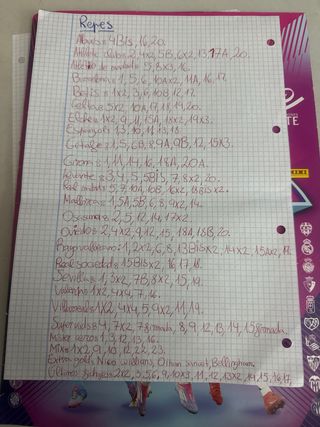 Repes
Alaves = 4Bis, 16, 20.
Athletic Clubs = 2, 4x2, 5B, 6x2, 13, 17A, 20.
Atlético de = 5, 8x3, 16.
Barcelona = 1, 5, 6, 10Ax2, 11A, 16, 17.
Betis = 1x2, 3, 6, 10B, 12, 17.
Celta = 5x2, 10A, 17, 18, 19, 20.
Elche = 1x2, 9, 11, 15A, 18x2, 19x3.
Espanyol = 1, 3, 10, 11, 13, 18.
Getafe = 1, 5, 6B, 8, 9A, 9B, 12, 15x3.
Girona = 1, 11, 14, 16, 18A, 20A.
Levante = 3, 4, 5, 5Bis, 7, 8x2, 20.
Real = 5, 7, 10A, 10B, 16x2, 18Bisx2.
Mallorca = 1, 5A, 5B, 6, 8, 9x2, 14.
Osasuna = 2, 5, 12, 14, 17x2.
Oviedo = 2, 4x2, 9, 12, 15, 18A, 18B, 20.
Rayo vallecano = 1, 2x2, 6, 8, 13Bisx2, 14x2, 15Ax2, 17.
Real sociedad = 15Bisx2, 16, 17, 18.
Sevilla = 1, 3x2, 7B, 8x2, 15, 19.
Valencia = 1x2, 4x4, 7, 16.
Villarreal = 1x2, 4x4, 5, 9x2, 11, 19.
4, 7x2, 7 firmada, 8, 9, 12, 13, 14, 15 firmada.
1, 3, 12, 13, 16.
Mix = 1x2, 9, 10, 12, 22, 23.
Extra gold = Nico williams, Bellingham.
Últimos fichajes = 2x2, 3, 5, 6, 9, 10x3, 11, 12, 13x2, 14, 15, 16, 17,
PANINI